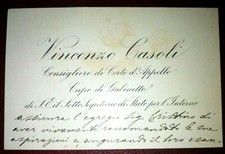 Vincenzo Casoli
Consigliere di Corte d'Appello
Capo di Gabinetto
di S. E. il Sotto Segretario di Stato per l'Interno
assicura l'egregio Sig.
aver vivamente raccomandato le sue
aspirazioni e augurando il loro